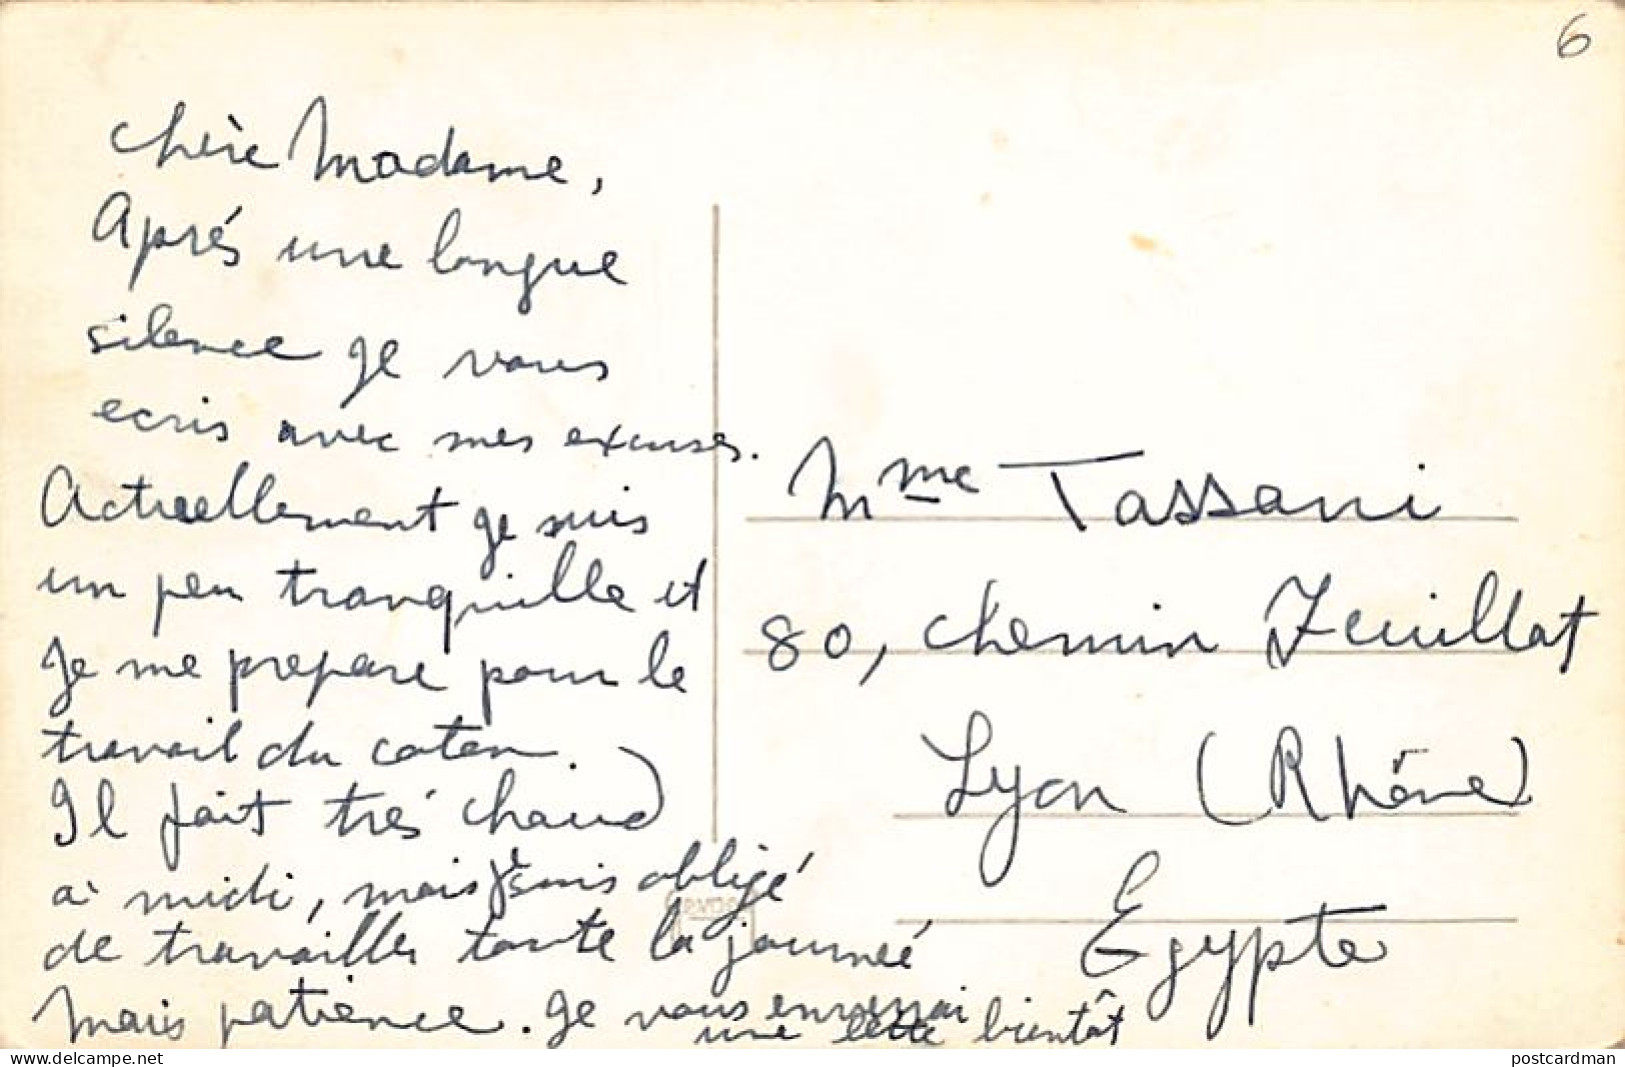 6
Chère Madame,
Aprés une longue
silence je vous
ecris avec mes excuses.
Actuellement je suis
un peu tranquille et
Je me prepare pour le
travail du coton.
Il fait trés chaud
à midi, mais je suis obligé
de travailler toute la journeé
Mais patience. Je vous enverrai
une lette bientôt
Mme Tassani
80, chemin Feuillat
Lyon (Rhône)
Egypte
postcardman